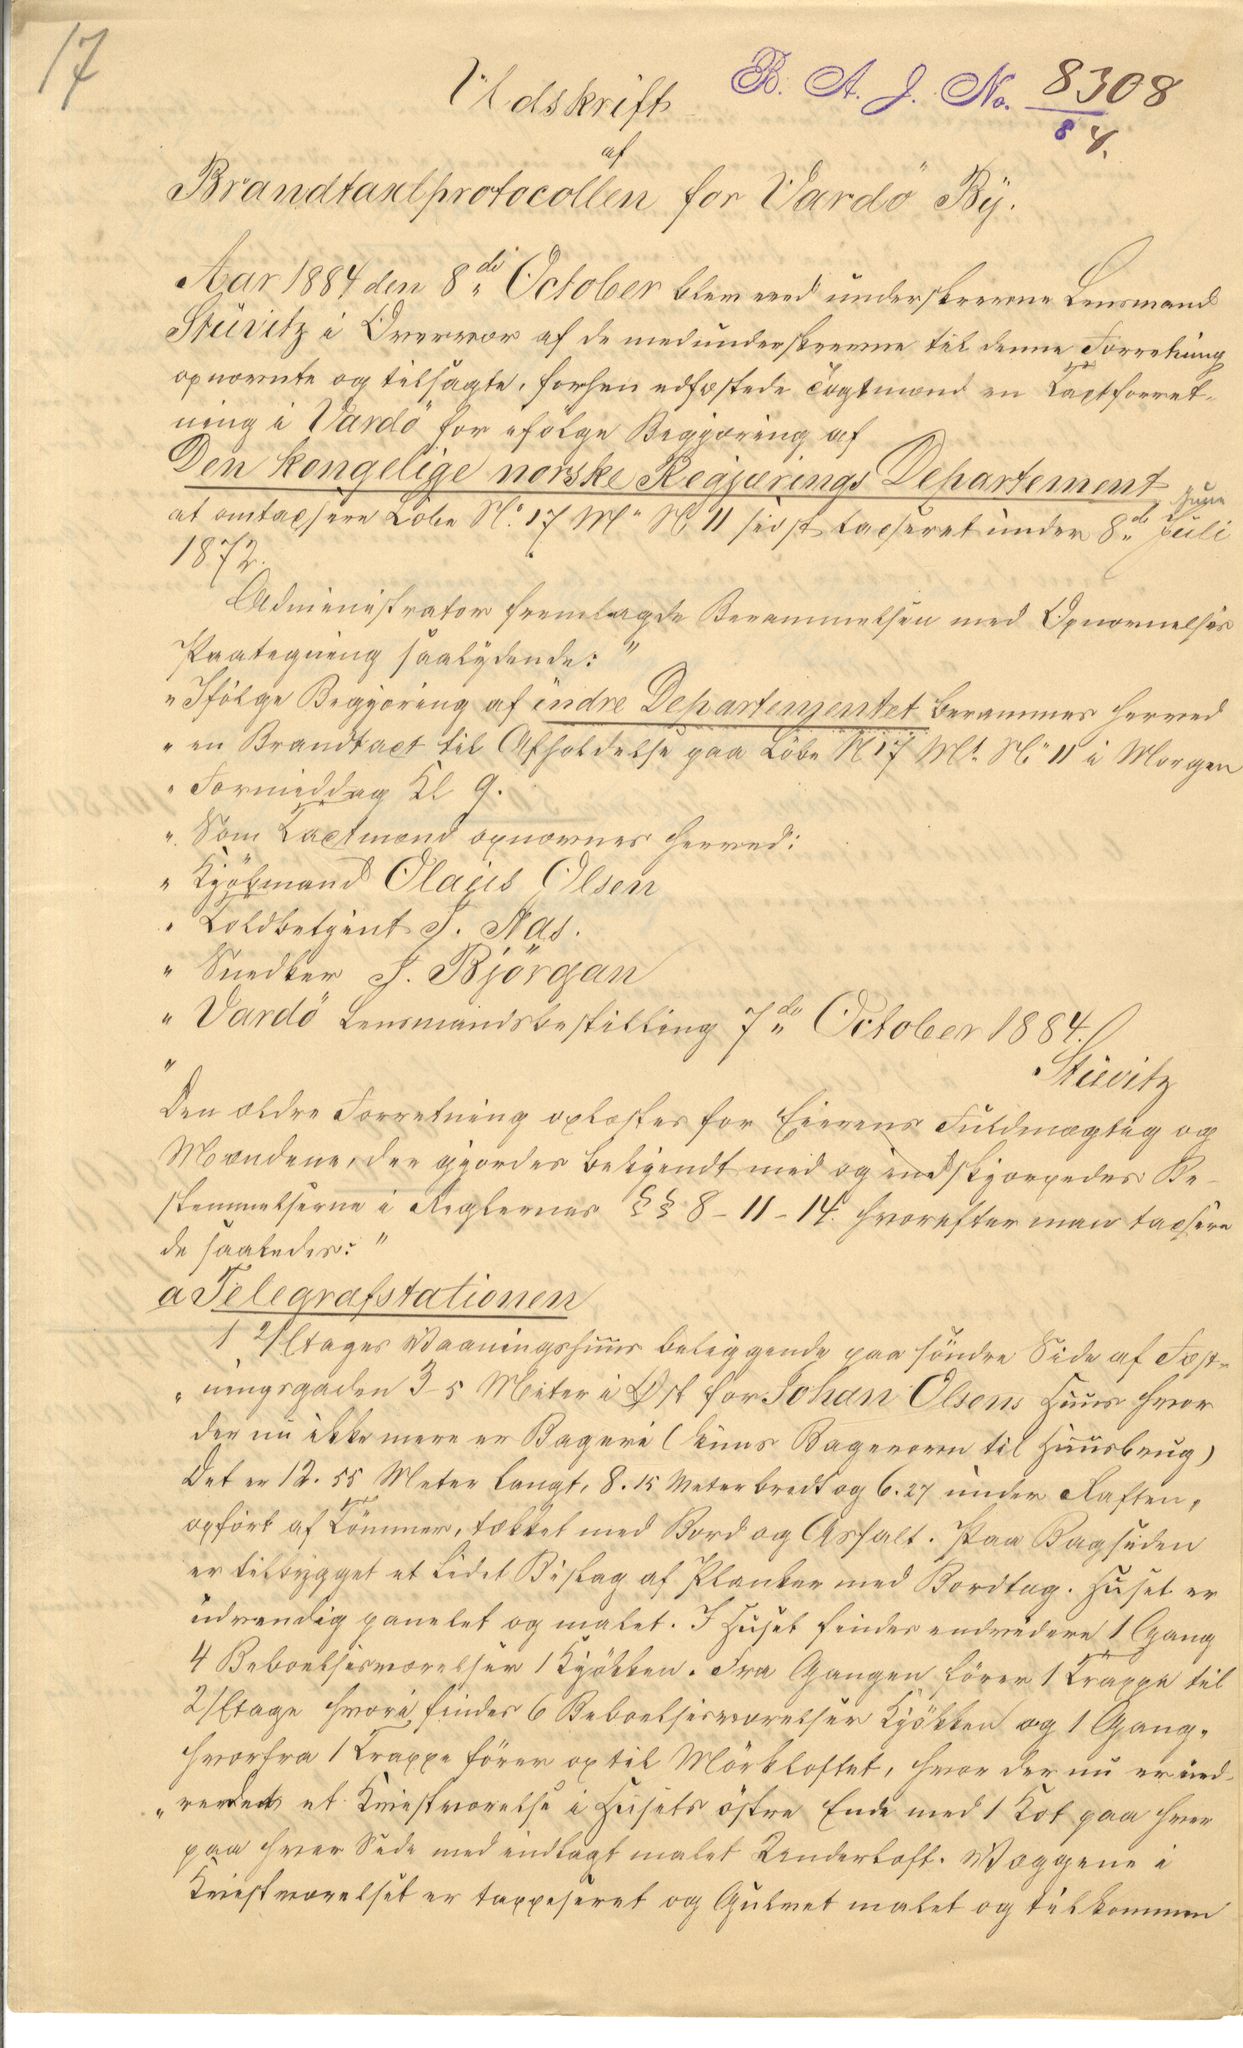 17
B. A. J. No. 8308
84.
Udskrift
af
Brandtaxtprotocollen for Vardö By.
Aar 1884 den 8de October blev ved underskrevne Lensmand
Stüvitz i Overvær af de medunderskrevne til denne Forretning
opnævnte og tilsagte, forhen edfæstede Togtmænd en Taxtforret-
ning i Vardö for efølge Begjæring af
Den kongelige norske Regjærings Departement
at omtaxsere Löbe No. 17 M. No 11 sidst taxseret under 8de Juli
1872.
Administrator fremlagde Berammelsen med Opnævnelses
Paategning saalydende: "
" Ifölge Begjæring af indre Departementet berammes herved
" en Brandtaxt til Afholdelse paa Löbe N 17 Mt. No 11 i Morgen
" Formiddag Kl 9.
" Som Taxtmænd opnævnes herved:
" Kjöbmand Olaus Olsen
" Toldbetjent J. Aas.
" Snedker J. Björgan
" Vardö Lensmandsbestilling 7de October 1884.
" Stüvitz
Den ældre Forretning oplæstes for Eierens Fuldmægtig og
Mændene, der gjordes bekjendt med og indskjærpedes Be-
stemmelserne i Reglernes §§ 8-11-14. hvorefter man taxsere
de saaledes: "
a Telegrafstationen
1 2/Etages Vaaningshuus beliggende paa söndre Side af Fæst-
" ningsgaden 3-5 Meter i Öst for Johan Olsens Huus hvor
der nu ikke mere er Bageri (kuns Bagerovn til Huusbrug)
Det er 12.55 Meter langt, 8.15 Meter bredt og 6.27 under Raften,
opfört af Tömmer, tækket med Bord og Asfalt. Paa Bagsiden
er tilbygget et lidet Bislag af Planker med Bordtag. Huset er
udvendig panelet og malet. I Huset findes endvidere 1 Gang
4 Beboelsesværelser 1 Kjökken. Fra Gangen förer 1 Trappe til
2/Etage hvori findes 6 Beboelsesværelser Kjökken og 1 Gang,
hvorfra 1 Trappe förer op til Mörkloftet, hvor der nu er ind-
" redet et Kvistværelse i Husets östre Ende med 1 Kot paa hver
paa hver Side med indlagt malet Underloft. Væggene i
Kvistværelset er tappeseret og Gulvet malet og tilkommen